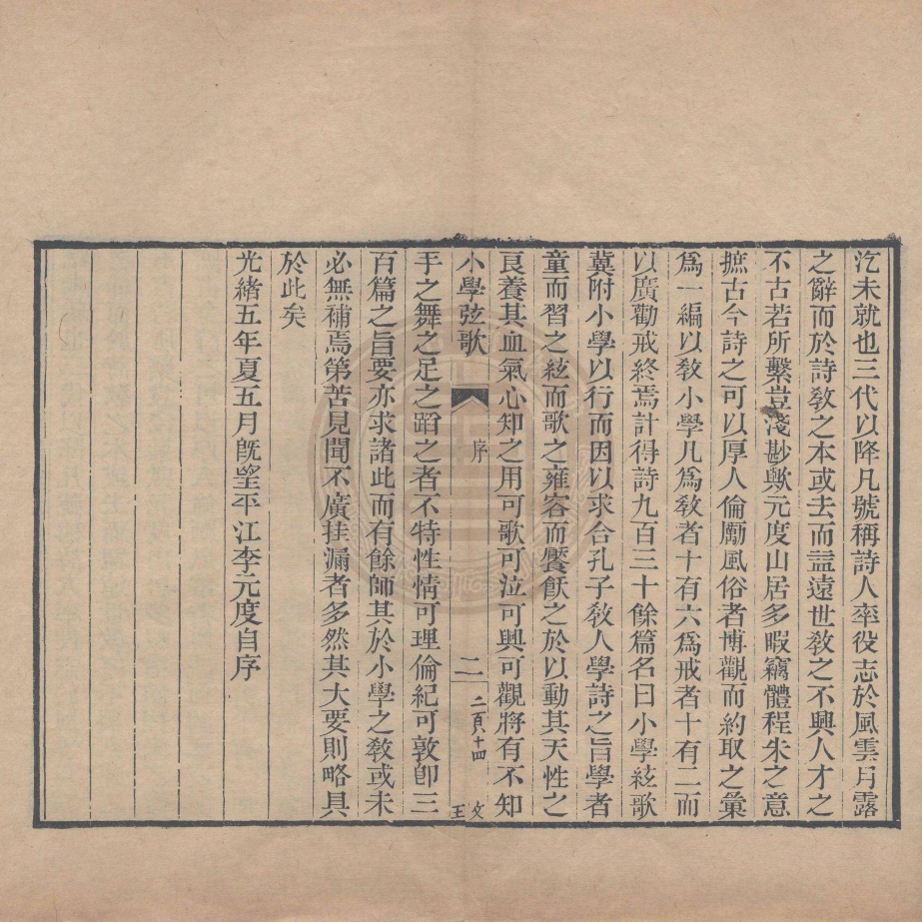 汔未就也三代以降凡號稱詩人率役志於風雲月露
之辭而於詩敎之本或去而益遠世敎之不興人才之
不古若所繫豈淺尟歟元度山居多暇竊體程朱之意
摭古今詩之可以厚人倫勵風俗者博觀而約取之彙
爲一編以敎小學凡爲敎者十有六爲戒者十有二而
以廣勸戒終焉計得詩九百三十餘篇名曰小學絃歌
冀附小學以行而因以求合孔子敎人學詩之旨學者
童而習之絃而歌之雍容而饜飫之於以動其天性之
良養其血氣心知之用可歌可泣可興可觀將有不知
小學弦歌 序 二 二頁十四 文 王
手之舞之足之蹈之者不特性情可理倫紀可敦卽三
百篇之旨要亦求諸此而有餘師其於小學之敎或未
必無補焉第苦見聞不廣挂漏者多然其大要則略具
於此矣
光緒五年夏五月旣望平江李元度自序